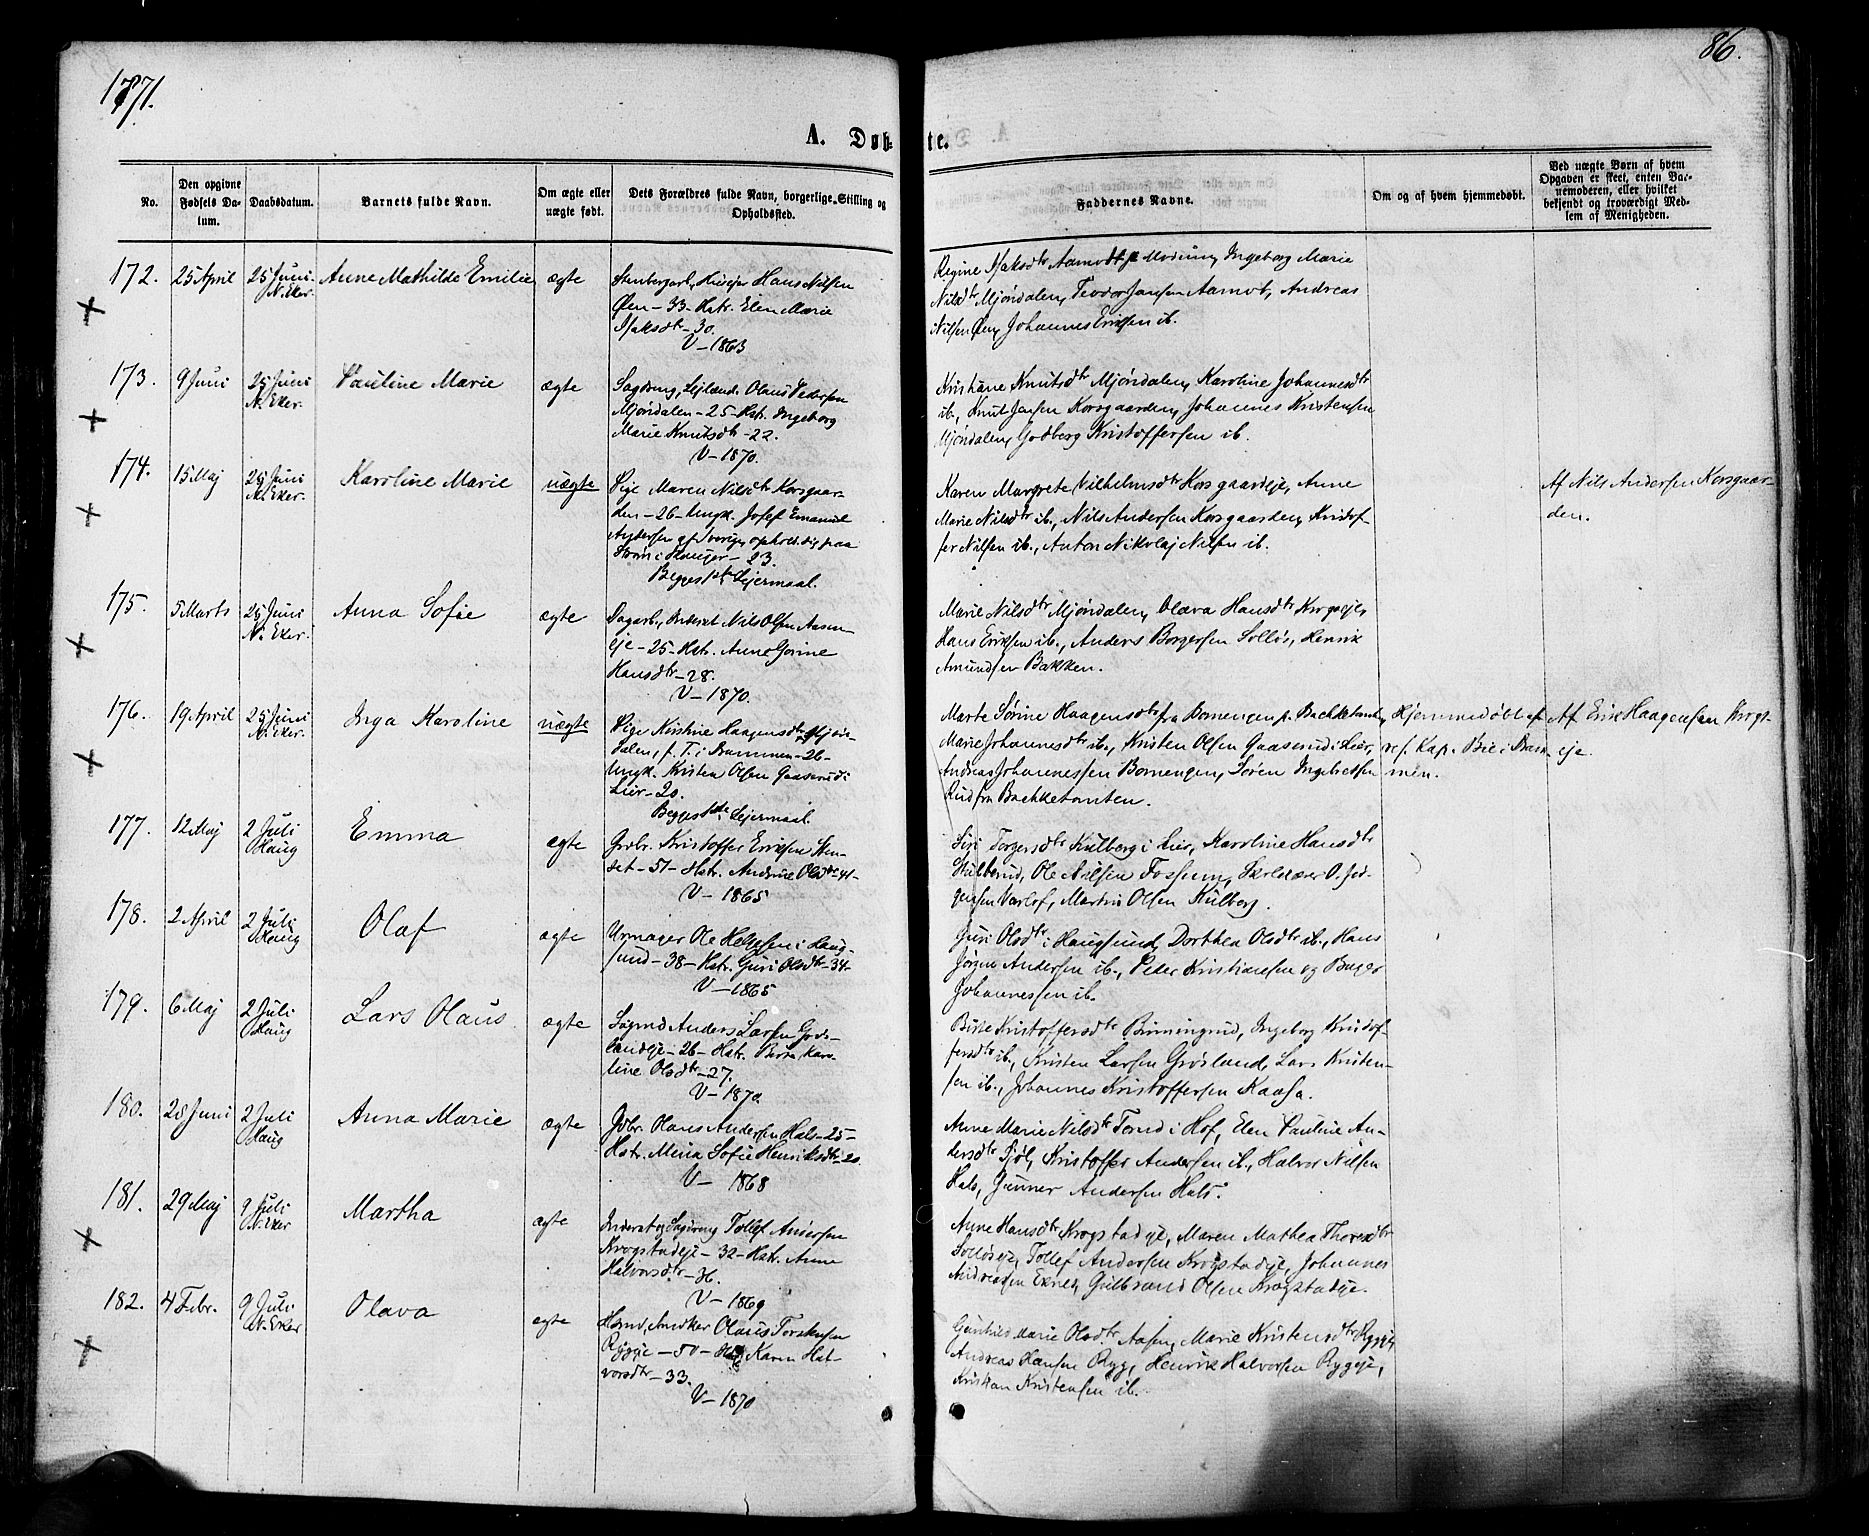 1871.
86.
A. Døb-
te.
No.
Den opgivne Fødsels Datum.
Daabsdatum.
Barnets fulde Navn.
Om ægte eller uægte født.
Dets Forældres fulde Navn, borgerlige Stilling og Opholdssted.
Faddernes Navne.
Om og af hvem hjemmedøbt.
Ved uægte Børn af hvem Opgaven er skeet, enten Barnemoderen, eller hvilket bekjendt og troværdigt Medlem af Menigheden.
172. 25 April 25 Juni N. Eker. Anne Mathilde Emilie ægte
Hans Nilsen
Øen - 33 - Hstr. Elen Marie
Isaksdtr - 30.
V - 1863
Regine Isaksdtr Aamodt p. Modum, Ingeborg Marie
Nilsdtr Mjøndalen, Teodor Jensen Aamot, Andreas
Nilsen Øen, Johannes Eriksen ib.
173. 9 Juni 25 Juni N. Eker. Pauline Marie ægte
Sagdreng, Lejlænd. Olaus Pedersen
Mjøndalen - 25 - Hstr. Ingeborg
Marie Knutsdtr - 22.
V - 1870.
Kristiane Knutsdtr Mjøndalen, Karoline Johannesdtr
ib., Knut Jensen Korsgaarden, Johannes Kristensen
Mjøndalen, Godberg Kristoffersen ib.
174. 15 Maj 25 Juni N. Eker. Karoline Marie uægte
Pige Maren Nilsdtr Korsgaar-
den - 26 - Ungk. Josef Emanuel
Andersen af Sverige, ophold. sig paa
i Houger - 23.
Begges 1ste Lejermaal.
Karen Margrete Vilhelmsdtr Korsgaardeje, Anne
Marie Nilsdtr ib., Nils Andersen Korsgaarden, Kristof-
fer Nilsen ib., Anton Nikolaj Nilsen ib.
Af Nils Andersen Korsgaar-
den.
175. 5 Marts 25 Juni N. Eker. Anna Sofie ægte
Dagarb., Inderst Nils Olsen Aasen-
eje - 25 - Hstr. Anne Gorine
Hansdtr - 28.
V - 1870.
Marie Nilsdtr Mjøndalen, Olava Hansdtr Krogseje,
Hans Eriksen ib., Anders Borgersen Solløs, Henrik
Amundsen Bakken.
176. 19 April 25 Juni N. Eker. Inga Karoline uægte
Pige Kirstine Haagensdtr Mjøn-
dalen, f. T. i Drammen - 26 -
Ungk. Kristen Olsen Gaaserud i
Lier - 20.
Begges 1ste Lejermaal.
Marte Sørine Haagensdtr fra Bomengen p. Bachketomten,
Marie Johannesdtr ib., Kristen Olsen Gaaserud i Lier,
Andreas Johannessen Bomengen, Søren Ingebretsen
Rud fra Bachketomten.
Hjemmedøbt af
res. Kap. Bie i Dram-
men.
Af Erik Haagensen Krogs-
eje.
177. 12 Maj 2 Juli Haug Emma ægte
Grdbr. Kristoffer Eriksen Sten-
set - 51 - Hstr. Andrine Olsdtr - 41 -
V - 1865
Siri Torgersdtr Kulberg i Lier, Karoline Hansdtr
Stubberud, Ole Nilsen Fossum, Skolelærer O. Jør-
gensen Varlof, Martin Olsen Kulberg.
178. 2 April 2 Juli Haug Olaf ægte
Urmager Ole Helgesen i Haug-
sund - 38 - Hstr. Guri Olsdtr - 34 -
V - 1865
Guri Olsdtr i Haugsund, Dorthea Olsdtr ib., Hans
Jørgen Andersen ib., Peder Kristiansen og Bager
Johannessen ib.
179. 6 Maj 2 Juli Haug Lars Olaus ægte
Sagmd Anders Larsen Grøs-
landeje - 26 - Hstr. Berte Karo-
line Olsdtr - 27.
V - 1870.
Birte Kristoffersdtr Bermingrud, Ingeborg Kristof-
fersdtr ib., Kristen Larsen Grøsland, Lars Kristen-
sen ib., Johannes Kristoffersen Kaasa.
180. 28 Juni 2 Juli Haug Anna Marie ægte
Gdbr. Hans Andersen Hals - 25 -
Hstr. Mina Sofie Henriksdtr - 20.
V - 1868
Anne Marie Nilsdtr Tomd i Hof, Elen Pauline An-
dersdtr Fjøl, Kristoffer Andersen ib., Halvor Nilsen
Hals, Gunner Andersen Hals.
181. 29 Maj 9 Juli N. Eker Martha ægte
Inderst og Sagdreng Tollef Andersen
Krogstadeje - 32 - Hstr. Anne
Halvorsdtr - 36.
V - 1869
Anne Hansdtr Krogstadeje, Maren Mathea Thoresdtr
Solløseje, Tollef Andersen Krogstadeje, Johannes
Andreasen Eknes, Gulbrand Olsen Krogstadeje.
182. 4 Febr. 9 Juli N. Eker Olava ægte
Hsmd, Snedker Olaus Torstensen
Ryggeje - 50 - Karen Hal-
vorsdtr - 33.
V - 1870
Gunhild Marie Olsdtr Aasen, Marie Kristensdtr Ryggeje,
Andreas Hansen Ryg, Henrik Halvorsen Ryggeje,
Kristian Kristensen ib.